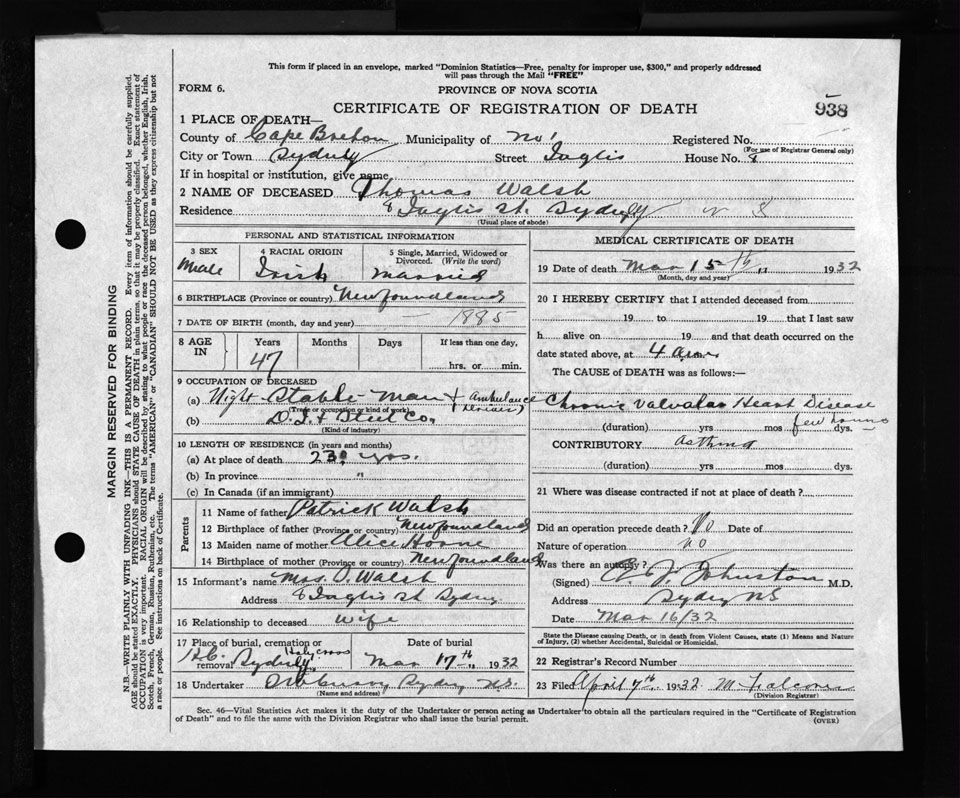 This form if placed in an envelope, marked "Dominion Statistics—Free, penalty for improper use, $300," and properly addressed
will pass through the Mail "FREE"
FORM 6.
PROVINCE OF NOVA SCOTIA
CERTIFICATE OF REGISTRATION OF DEATH
938
1 PLACE OF DEATH—
County of Cape Breton Municipality of No 1 Registered No.
(For use of Registrar General only)
City or Town Sydney Street Inglis House No. 8
If in hospital or institution, give name
2 NAME OF DECEASED Thomas Walsh
Residence 8 Inglis St. Sydney N S
(Usual place of abode)
PERSONAL AND STATISTICAL INFORMATION
3 SEX Male
4 RACIAL ORIGIN Irish
5 Single, Married, Widowed or Divorced. (Write the word) married
6 BIRTHPLACE (Province or country) Newfoundland
7 DATE OF BIRTH (month, day and year) 1885
8 AGE IN Years Months Days If less than one day,
47 hrs. or min.
9 OCCUPATION OF DECEASED
(a) Night Stable-man + Ambulance
(Trade or occupation or kind of work)
(b) D. I. & Steel Co.
(Kind of industry)
10 LENGTH OF RESIDENCE (in years and months)
(a) At place of death 23 yrs.
(b) In province "
(c) In Canada (if an immigrant)
Parents
11 Name of father Patrick Walsh
12 Birthplace of father (Province or country) Newfoundland
13 Maiden name of mother Alice
14 Birthplace of mother (Province or country) Newfoundland
15 Informant's name Mrs. Walsh
Address 8 Inglis St Sydney
16 Relationship to deceased wife
17 Place of burial, cremation or removal H.C. Sydney Holy cross
Date of burial Mar 17th 1932
18 Undertaker Sydney N.S.
(Name and address)
MEDICAL CERTIFICATE OF DEATH
19 Date of death Mar 15th 1932
(Month, day and year)
20 I HEREBY CERTIFY that I attended deceased from
19 to 19 that I last saw
h alive on 19 and that death occurred on the
date stated above, at 4 a.m.
The CAUSE of DEATH was as follows:
Chronic Valvular Heart Disease
(duration) yrs mos few hours dys.
CONTRIBUTORY Asthma
(duration) yrs mos dys.
21 Where was disease contracted if not at place of death?
Did an operation precede death? No Date of
Nature of operation no
Was there an autopsy?
(Signed) Johnston M.D.
Address Sydney NS
Date Mar 16/32
State the Disease causing Death, or in death from Violent Causes, state (1) Means and Nature
of Injury, (2) whether Accidental, Suicidal or Homicidal.
22 Registrar's Record Number
23 Filed April 7th 1932
(Division Registrar)
Sec. 46—Vital Statistics Act makes it the duty of the Undertaker or person acting as Undertaker to obtain all the particulars required in the "Certificate of Registration
of Death" and to file the same with the Division Registrar who shall issue the burial permit.
(OVER)
MARGIN RESERVED FOR BINDING
N.B.—WRITE PLAINLY WITH UNFADING INK—THIS IS A PERMANENT RECORD. Every item of information should be carefully supplied.
AGE should be stated EXACTLY. PHYSICIANS should STATE CAUSE OF DEATH in plain terms, so that it may be properly classified. Exact statement of
OCCUPATION is very important. RACIAL ORIGIN will be described by stating to what people or race the deceased person belonged, whether English, Irish,
Scotch, French, German, Russian, Ruthenian, etc. The terms "AMERICAN" or "CANADIAN" SHOULD NOT BE USED as they express citizenship but not
a race or people. See instructions on back of Certificate.